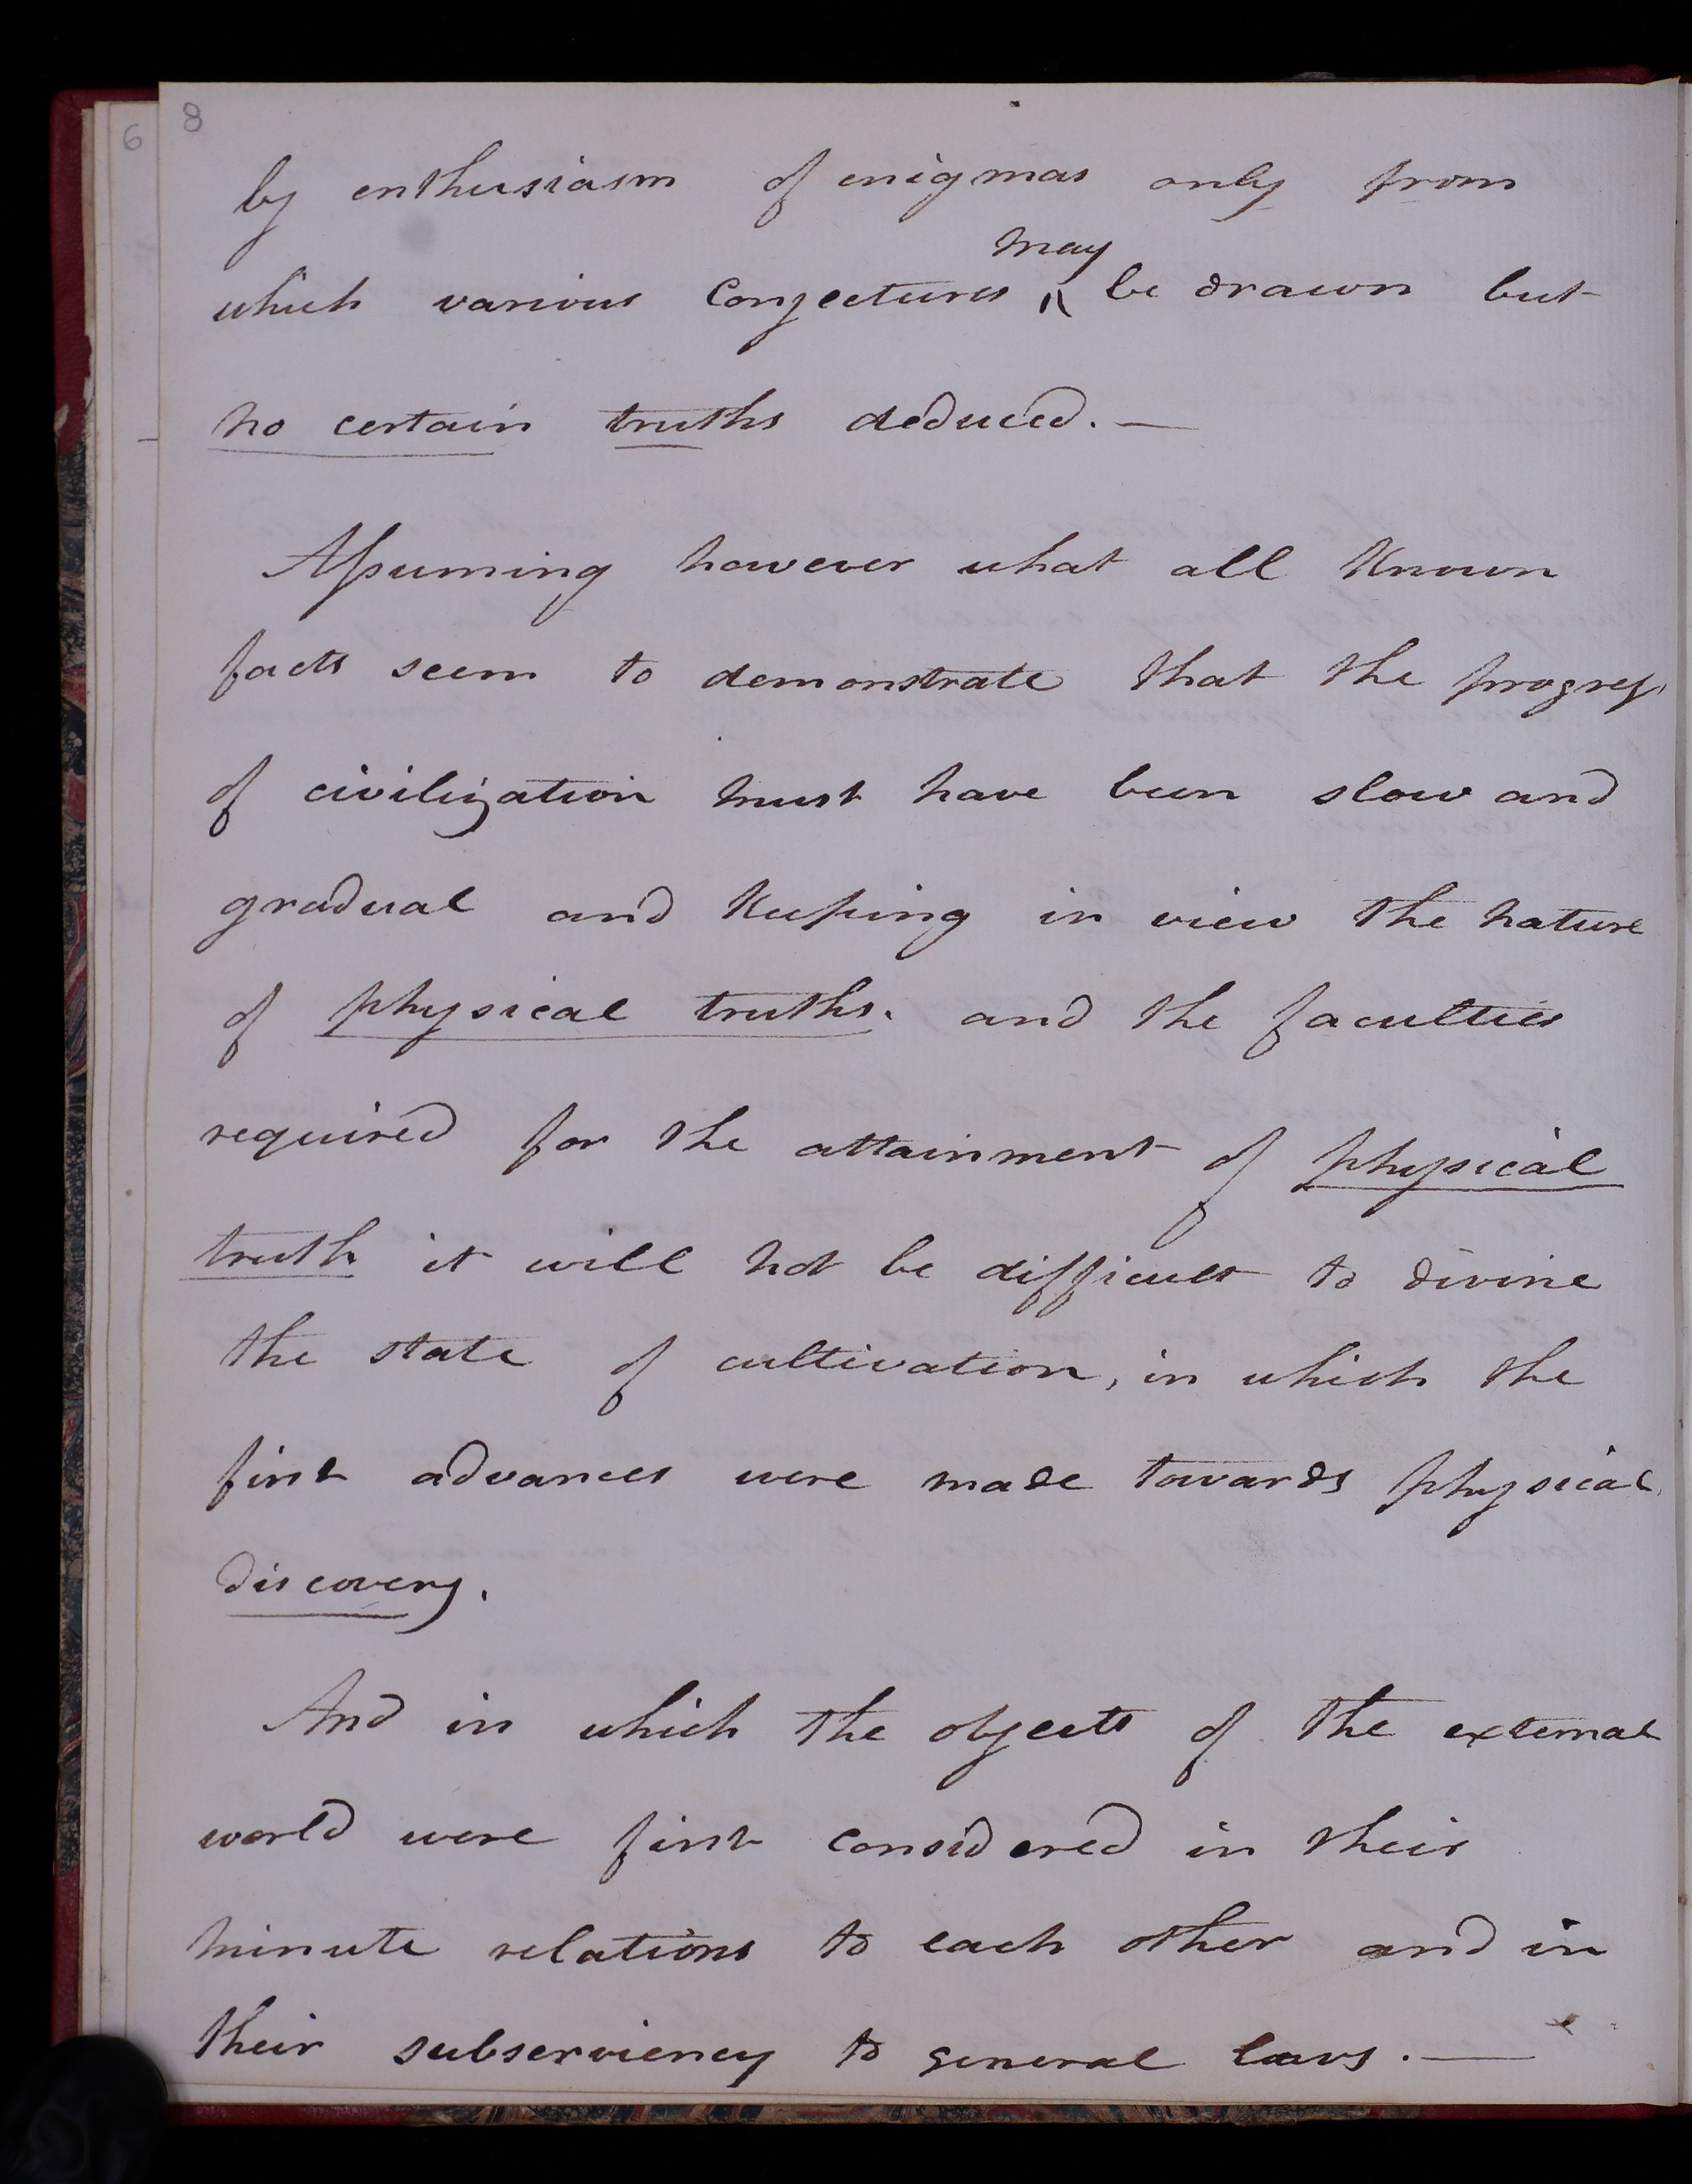 6 8
by enthusiasm of enigmas only from
may
which various conjectures ^ be drawn but
no certain truths deduced. —
Assuming however what all known
facts seem to demonstrate that the progress
of civilization must have been slow and
gradual and keeping in view the nature
of physical truths. and the faculties
required for the attainment of physical
truth it will not be difficult to divine
the state of cultivation, in which the
first advances were made towards physical
discovery.
And in which the objects of the external
world were first considered in their
minute relations to each other and in
their subserviency to general laws. —